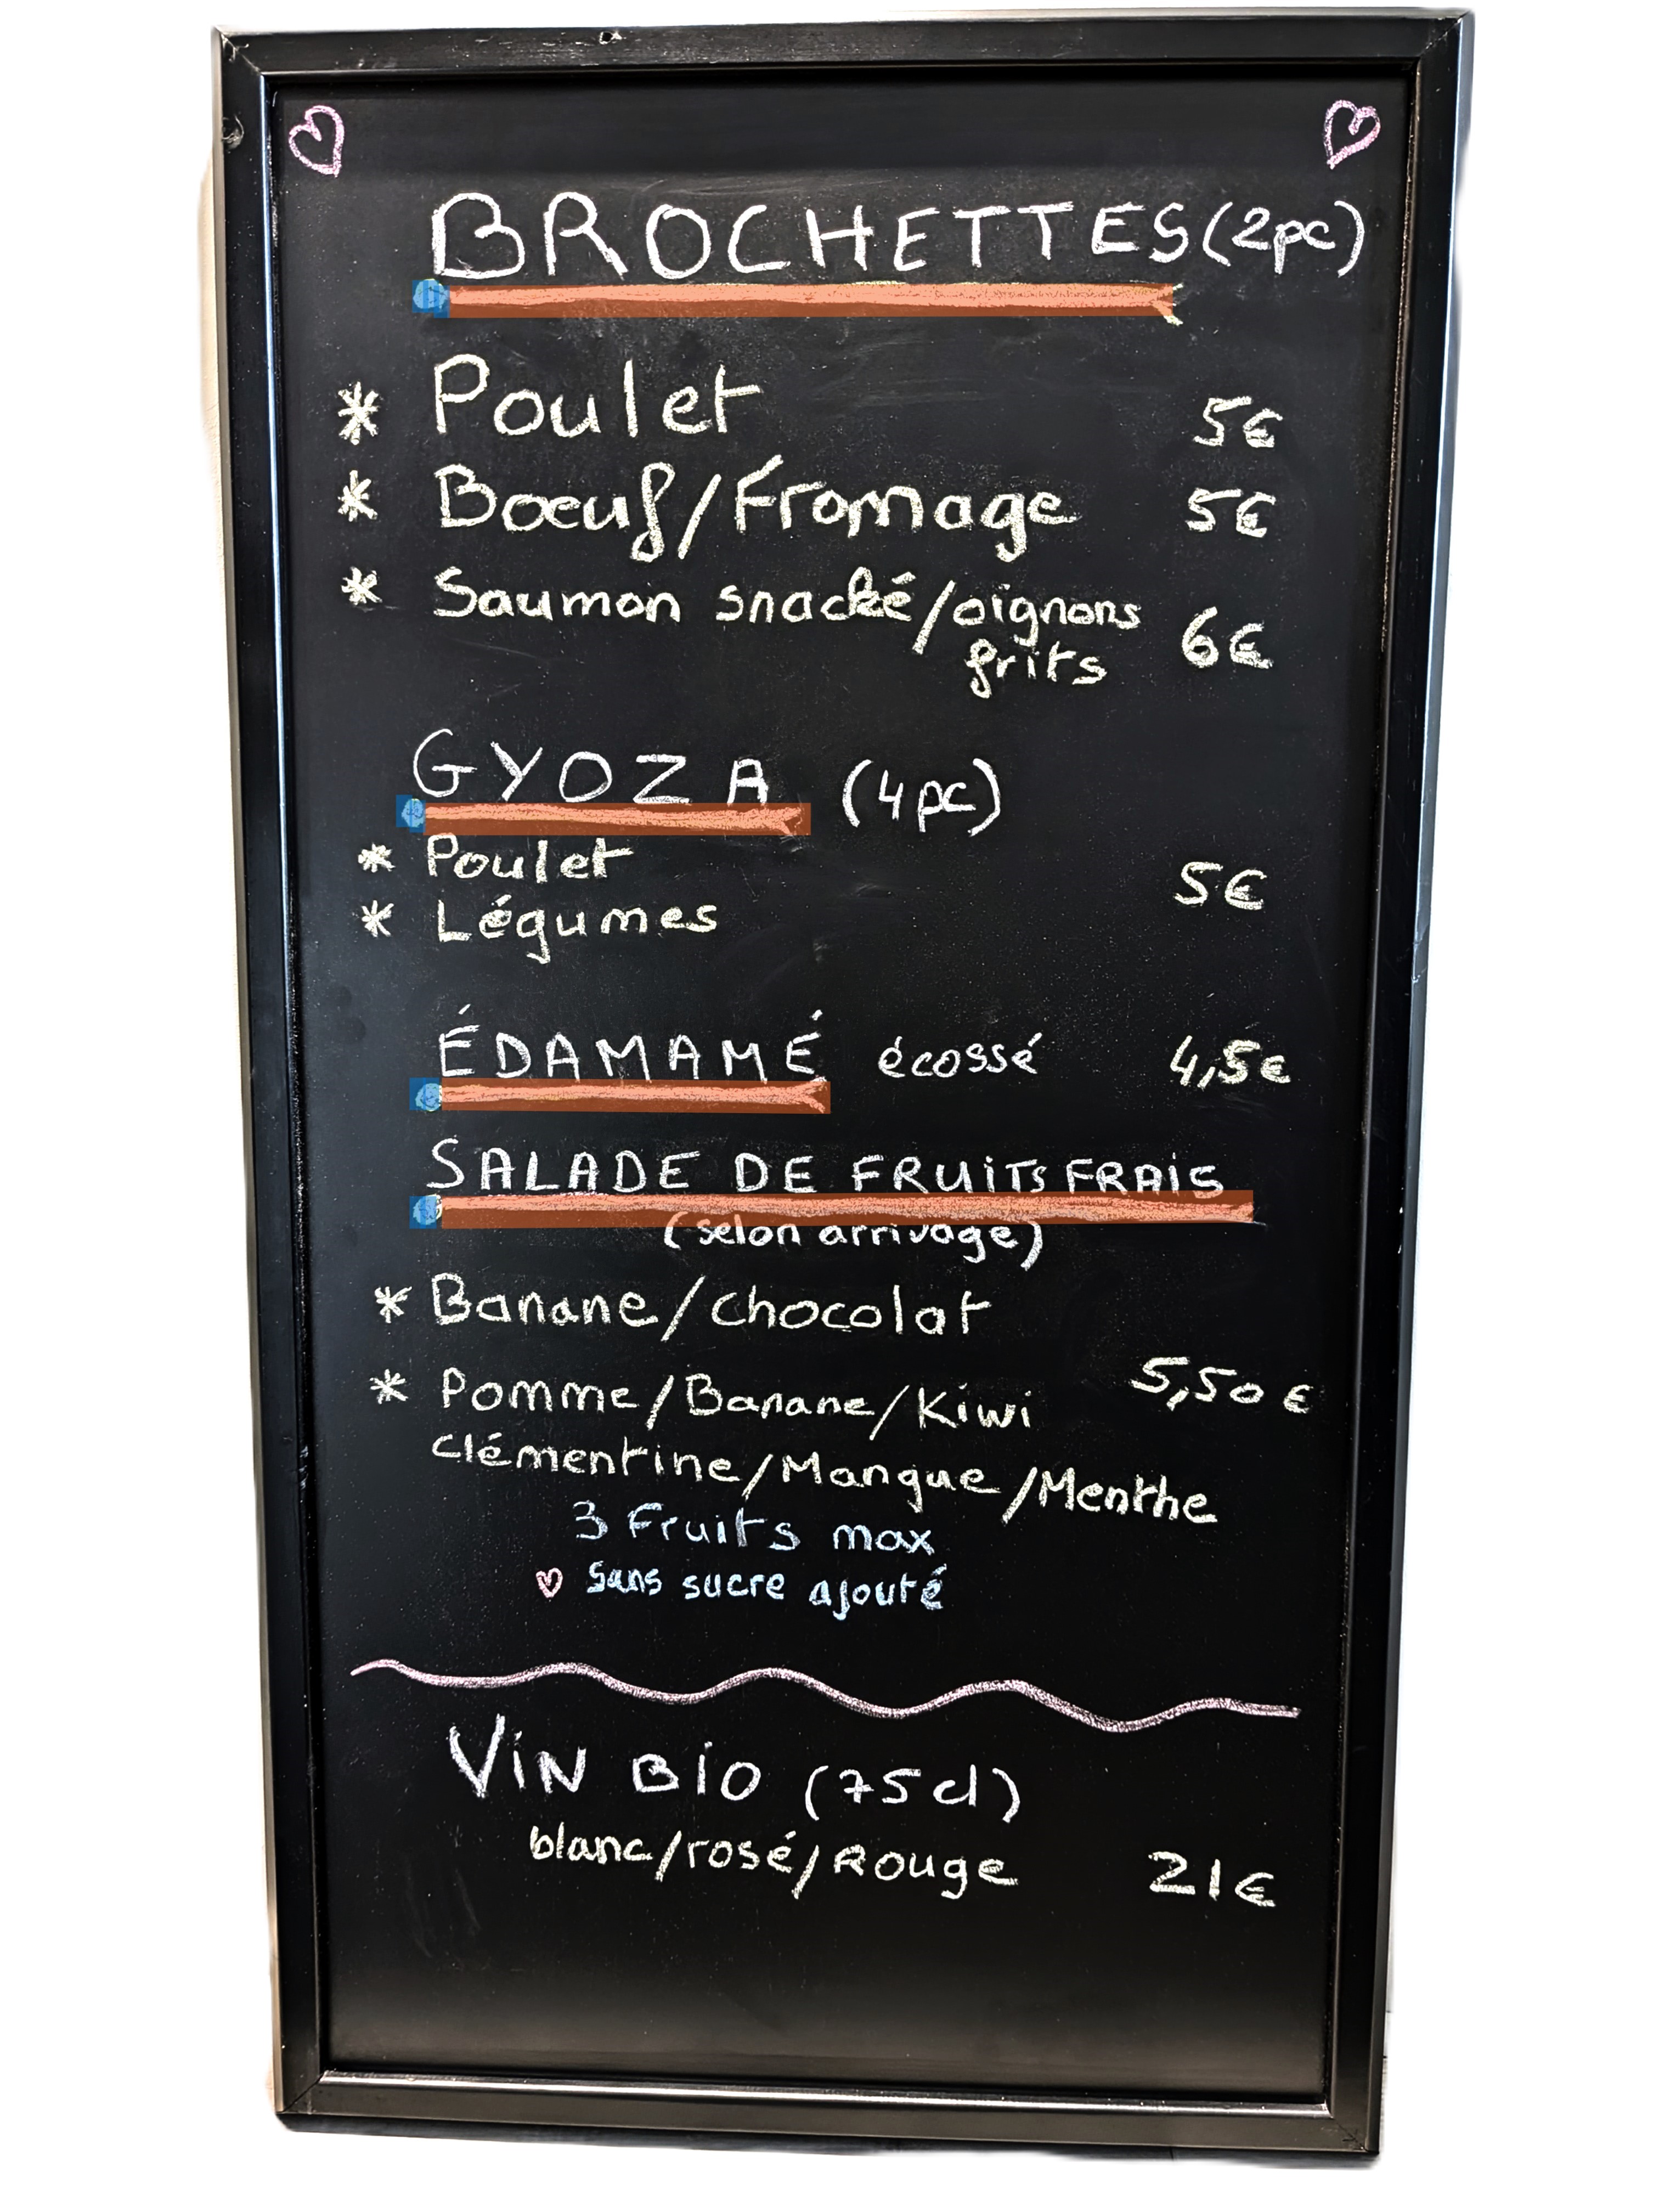 BROCHETTES (2pc)
* Poulet 5€
* Bœuf/Fromage 5€
* Saumon snacké/oignons
frits 6€
GYOZA (4pc)
* Poulet
5€
* Légumes
ÉDAMAMÉ écossé 4,5€
SALADE DE FRUiTS FRAiS
(selon arrivage)
* Banane/chocolat
* Pomme/Banane/Kiwi 5,50€
clémentine/Mangue/Menthe
3 Fruits max
♡ Sans sucre ajouté
ViN BiO (75cl)
blanc/rosé/Rouge 21€